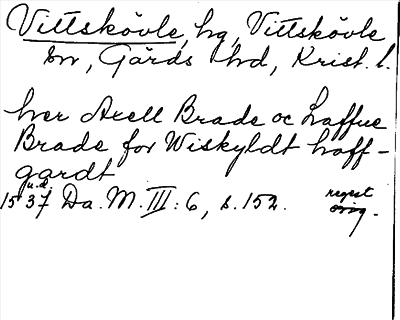 Vittskövle, hg, Vittskövle
sn, Gärds hd, Krist. l.
her Axell Brade oc Laffue
Brade for Wiskyldt hoff-
gardt
u.d.
1537 Da. M. III: 6, s. 152. regest
orig.